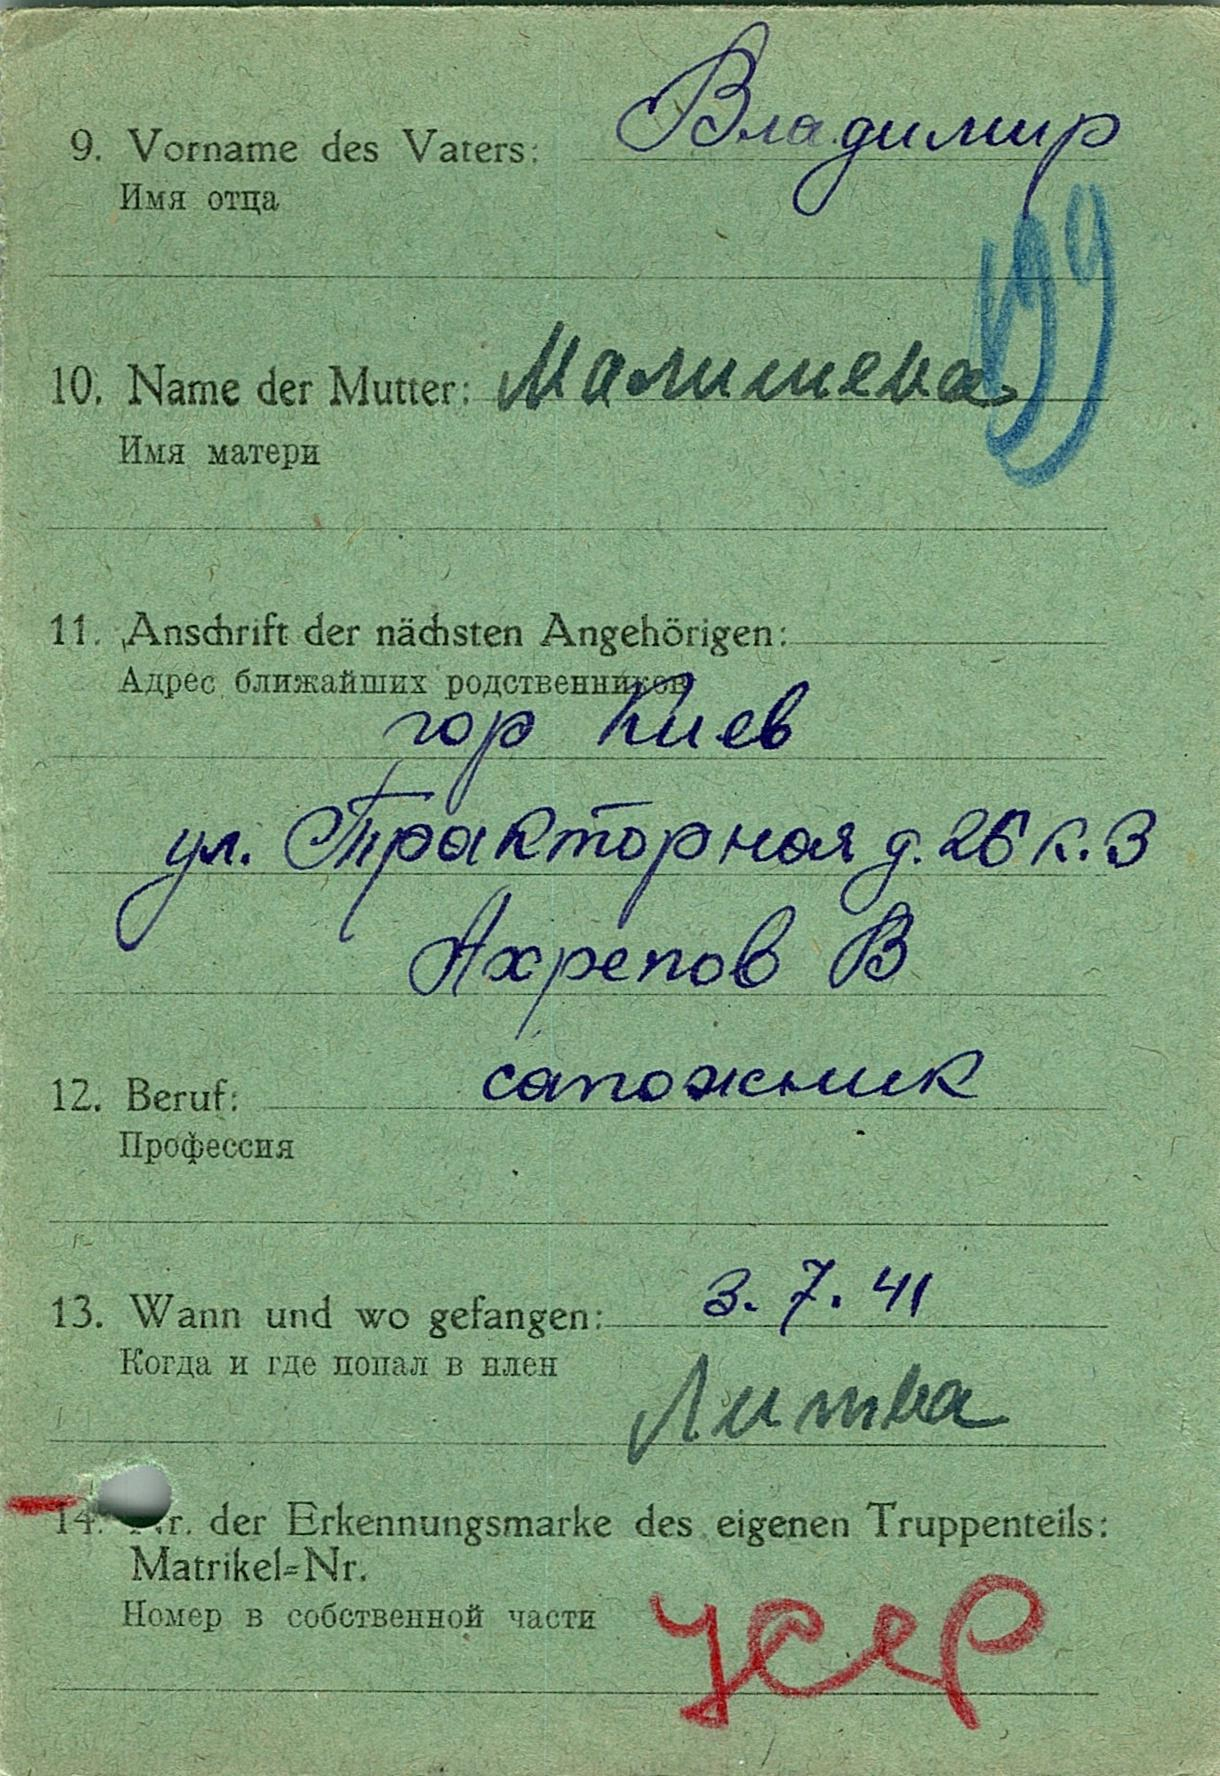 9. Vorname des Vaters: Владимир
Имя отца
99
10. Name der Mutter: Малишева
Имя матери
11. Anschrift der nächsten Angehörigen:
Адрес ближайших родственников
гор Киев
ул. Тракторная д. 26 к. 3
Ахрепов В
12. Beruf: сапожник
Профессия
13. Wann und wo gefangen: 3. 7. 41
Когда и где попал в плен
Литва
14. Nr. der Erkennungsmarke des eigenen Truppenteils:
Matrikel-Nr.
Номер в собственной части